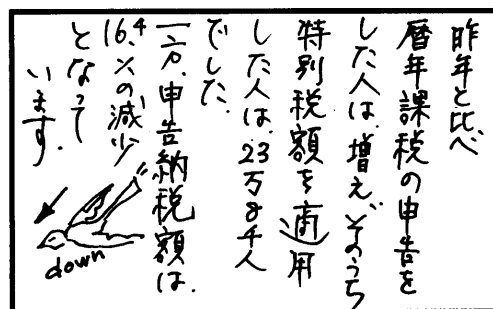 昨年と比べ
暦年課税の申告を
した人は、増え、そのうち
特別税額を適用
した人は、23万8千人
でした。
一方、申告納税額は、
16.4%の減少
となって
います。
down